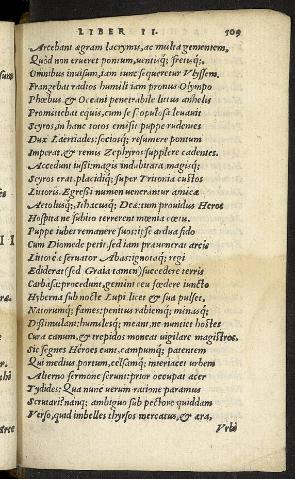 LIBER II. 109
Arcebant agram lacrymis, ac multa gementem,
Quòd non erueret pontum, uentisq; fretisq;.
Omnibus inuisum, iam tunc sequeretur Vlyssem.
Frangebat radios humili iam pronus Olympo
Phœbus, & Oceani penetrabile litus anhelis
Promittebat equis, cum se scopulosa leuauit
Scyros, in hanc totos emisit puppe rudentes
Dux Laërtiades: sociosq; resumere pontum
Imperat, & remis Zephyros supplere cadentes.
Accedunt iuxtà: magis indubitata magisq;
Scyros erat. placidiq; super Tritonia custos
Littoris. Egressi numen uenerantur amicæ
Aetolusq;, Ithacusq; Deæ: tum prouidus Heros
Hospita ne subito terrerent mœnia cœtu.
Puppe iubet remanere suos: ipse ardua fido
Cum Diomede petit. sed iam præuenerat arcis
Littoreæ seruator Abas: ignotaq; regi
Ediderat (sed Graia tamen) succedere terris
Carbasa: procedunt, gemini ceu fœdere iuncto
Hyberna sub nocte Lupi. licet & sua pulset,
Natorumq; fames: penitus rabiemq; minasq;
Dissimulant: humilesq; meant, ne nuntiet hostes
Cura canum, & trepidos moneat uigilare magistros.
Sic segnes Heroes eunt. campumq; patentem
Qui medius portum, celsamq; interiacet urbem
Alterno sermone serunt: prior occupat acer
Tydides: Qua nunc uerum ratione paramus
Scrutari? nanq; ambiguo sub pectore quiddam
Verso, quid imbelles thyrsos mercatus, & æra,
Vrbi